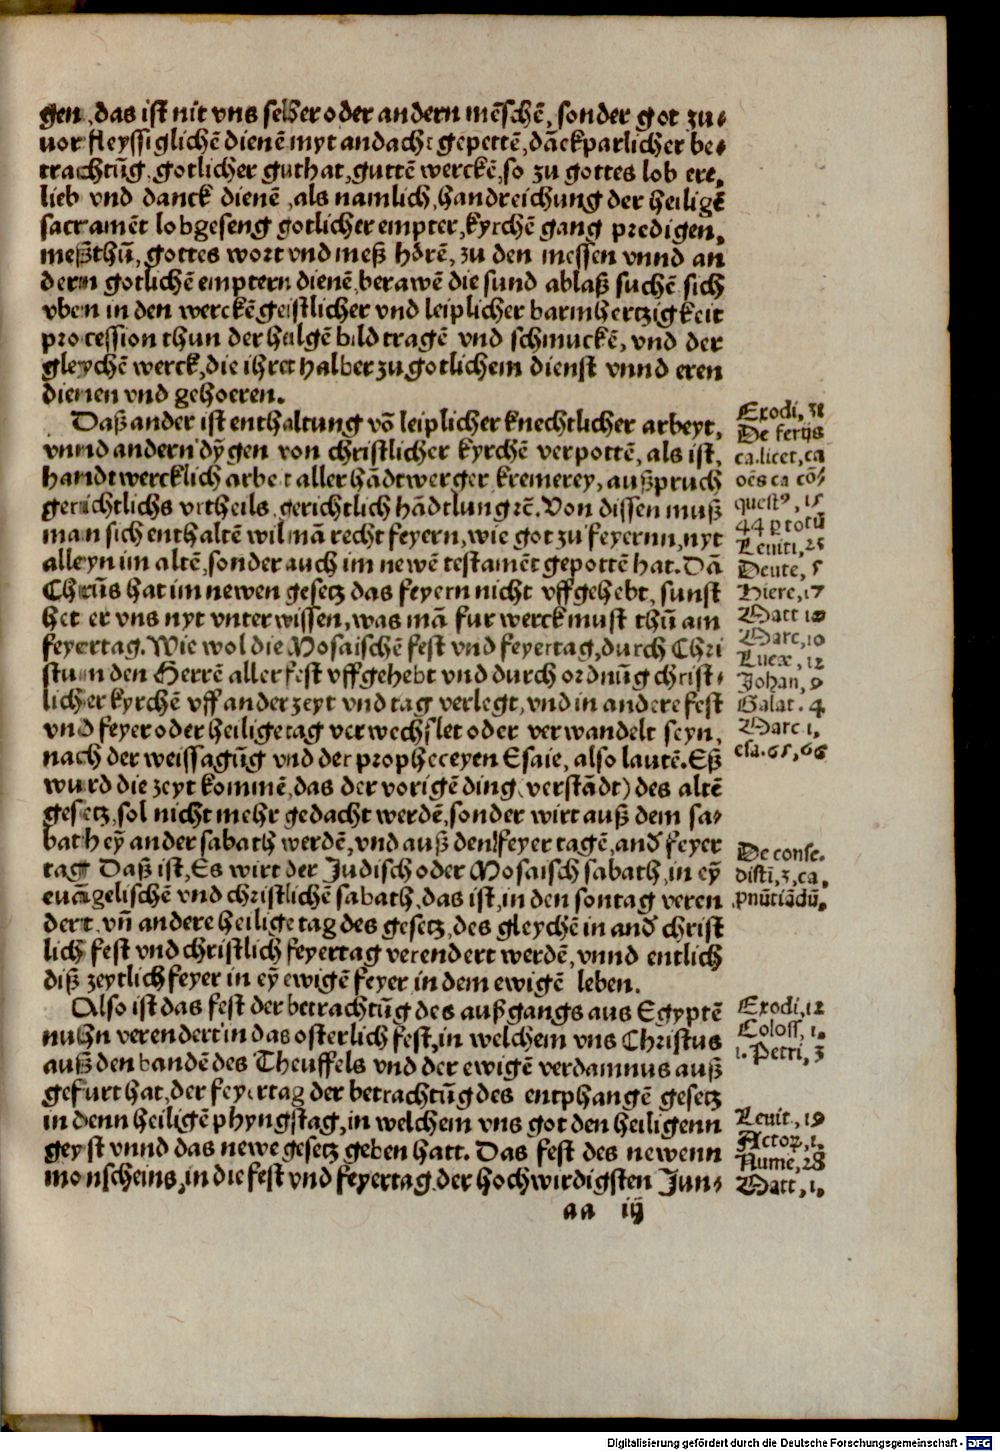 gen, das ist nit vns selber oder andern mēschē, sonder got zu⸗
uor fleyssiglichē dienē myt andacht gepettē, dāckparlicher be⸗
trachtūg, gotlicher guthat, guttē werckē, so zu gottes lob ere,
lieb vnd danck dienē, als namlich, handreichung der heiligē
sacramēt lobgeseng gotlicher empter, kyrchē gang predigen,
meßthū, gottes wort vnd meß hörē, zu den messen vnnd an
dern gotlichē emptern dienē, berawē die sund ablaß suchē sich
vben in den werckē geistlicher vnd leiplicher barmhertzigkeit
procession thun der heilgē bild tragē vnd schmuckē, vnd der
gleychē werck, die ihret halber zu gotlichem dienst vnnd eren
dienen vnd gehoeren.
Daß ander ist enthaltung vō leiplicher knechtlicher arbeyt,
vnnd andern dȳgen von christlicher kyrchē verpottē, als ist,
handtwercklich arbeit aller hādtwerger kremerey, außpruch
gerichtlichs vrtheils, gerichtlich hādtlung ꝛc̄. Von dissen muß
man sich enthaltē wil mā recht feyern, wie got zu feyernn, nyt
alleyn im altē, sonder auch im newē testamēt gepottē hat. Dā
Chrūs hat im newen gesetz das feyern nicht vffgehebt, sunst
het er vns nyt vnterwissen, was mā fur werck must thū am
feyertag. Wie wol die Mosaischē fest vnd feyertag, durch Chri
stum den Herrē aller fest vffgehebt vnd durch ordnūg christ⸗
licher kyrchē vff ander zeyt vnd tag verlegt, vnd in andere fest
vnd feyer oder heilige tag verwechslet oder verwandelt seyn,
nach der weissagūg vnd der propheceyen Esaie, also lautē. Eß
wurd die zeyt kommē, das der vorigē ding (verstādt) des altē
gesetz, sol nicht mehr gedacht werdē, sonder wirt auß dem sa⸗
bath eȳ ander sabath werdē, vnd auß den feyer tagē, and̛ feyer
tag Daß ist, Es wirt der Judisch oder Mosaisch sabath, in eȳ
euāgelischē vnd christlichē sabath, das ist, in den sontag veren
dert, vn̄ andere heilige tag des gesetz, des gleychē in and̛ christ
lich fest vnd christlich feyertag verendert werdē, vnnd entlich
diß zeytlich feyer in eȳ ewigē feyer in dem ewigē leben.
Also ist das fest der betrachtūg des außgangs aus Egyptē
nuhn verendert in das osterlich fest, in welchem vns Christus
auß den bandē des Theuffels vnd der ewigē verdamnus auß
gefurt hat, der feyertag der betrachtūg des entphangē gesetz
in denn heiligē phyngstag, in welchem vns got den heiligenn
geyst vnnd das newe gesetz geben hatt. Das fest des newenn
monscheins, in die fest vnd feyertag der hochwirdigsten Jun⸗
aa iij
Exodi, 31
De ferijs
ca. licet, ca
oēs ca cō⸗
questꝰ, 15
44 p totū
Leuiti, 25
Deute, 5
Hiere, 17
Matt 19
Marc, 10
Lucæ, 12
Johan, 9
Galat. 4
Marc 1,
esa. 65, 66
De conse.
distī, 3, ca.
pnūtiādū,
Exodi, 12
Coloss, 1,
1. Petri, 3
Leuit, 19
Actoꝝ, 1,
Nume, 28
Matt, 1,
Digitalisierung gefördert durch die Deutsche Forschungsgemeinschaft - DFG